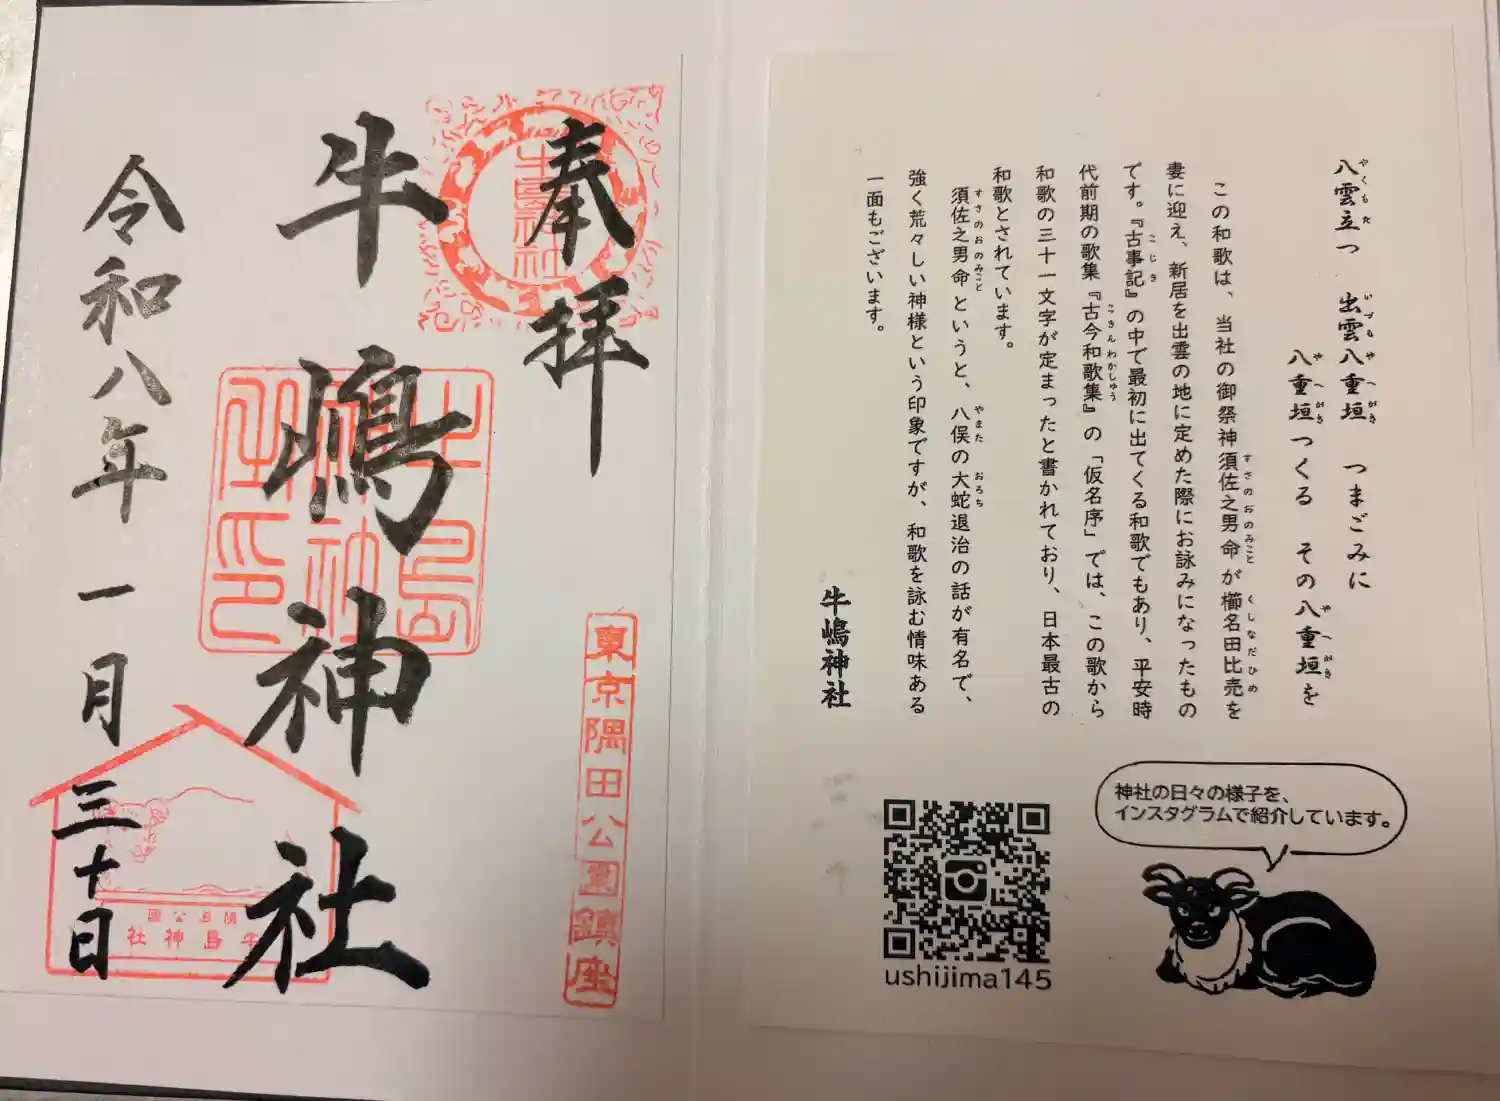 八雲立つ 出雲八重垣 つまごみに
八重垣つくる その八重垣を
この和歌は、当社の御祭神須佐之男命が櫛名田比売を
妻に迎え、新居を出雲の地に定めた際にお詠みになったもの
です。『古事記』の中で最初に出てくる和歌でもあり、平安時
代前期の歌集『古今和歌集』の「仮名序」では、この歌から
和歌の三十一文字が定まったと書かれており、日本最古の
和歌とされています。
須佐之男命というと、八俣の大蛇退治の話が有名で、
強く荒々しい神様という印象ですが、和歌を詠む情味ある
一面もございます。
牛嶋神社
神社の日々の様子を、
インスタグラムで紹介しています。
ushijima145
奉拝
東京隅田公園鎮座
牛嶋神社
令和八年一月三十日
隅田公園
牛島神社